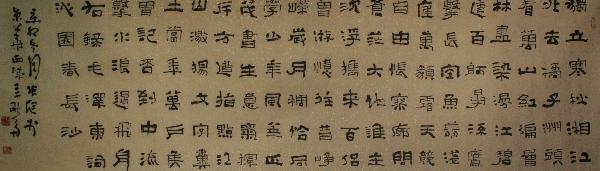 獨立寒秋湘江
北去橘子洲頭
看萬山紅遍層
林盡染漫江碧
透百舸爭流鷹
擊長空魚翔淺
底萬類霜天競
自由悵寥廓問
蒼茫大地誰主
沉浮攜來百侶
曾游憶往昔崢
嶸歲月稠恰同
學少年風華正
茂書生意氣揮
斥方遒指點江
山激揚文字糞
土當年萬戶侯
曾記否到中流
擊水浪遏飛舟
右錄毛澤東詞
沁園春長沙